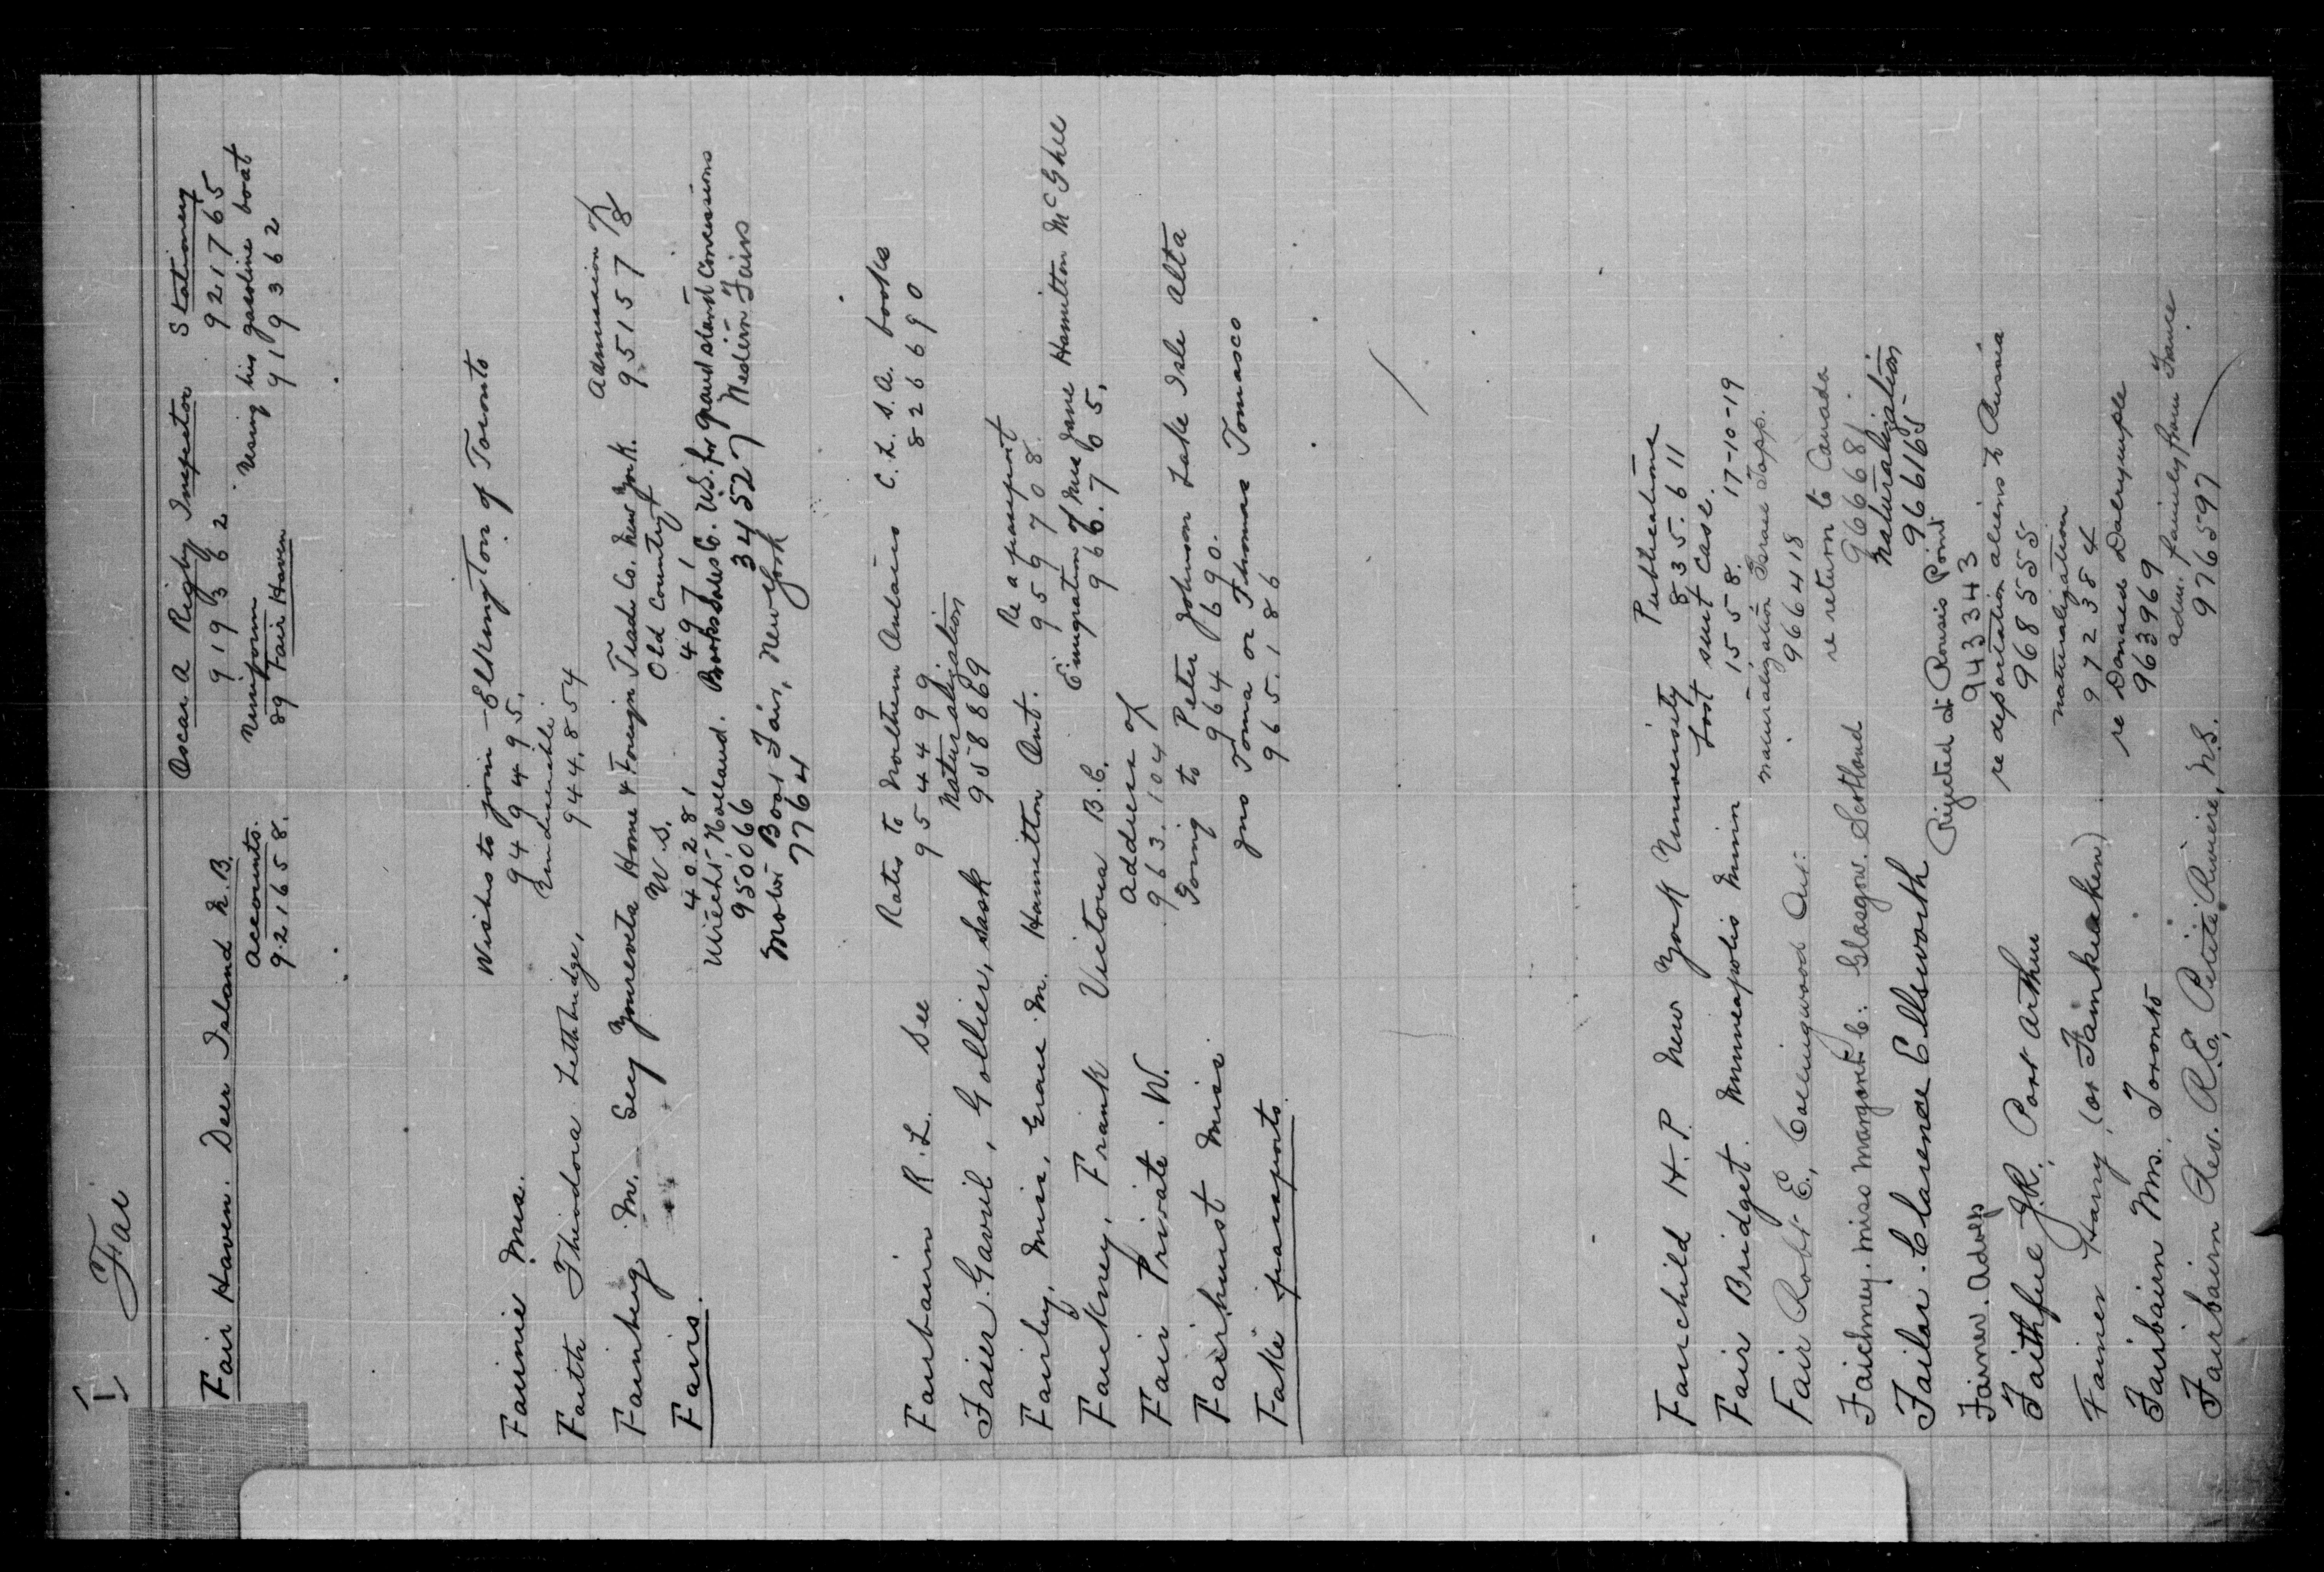 Fai
Fair Haven. Deer Island N.B. Oscar A Rigby Inspector Stationery
919362 921765
Accounts. Uniform Using his gasoline boat
9.21658. 89 Fair Haven 919362
Fairnie Mrs. Wishes to join - Elkington of Toronto
949495.
Faith Theodora Lethbridge, Undesirable
944.854
Fainberg M. Home & Foreign Trade Co. New York. Admission of
U.S. Old Country 951578
Fairs. 40281 4971
Utrecht, Holland. Books Sales Co. U.S. for grand stand Concessions
950066 34527 Western Fairs
Motor Boat Fair, New York
7764
Fairbairn R.L. See Rates to Northern Ontario C.L.S.A. books
954499 826690
Faier Gavril, Gollier, Sask Naturalization
958869
Fairley, Miss, Grace M. Hamilton Ont. Re a passport
959708.
Fairkney, Frank Victoria B.C. Emigration of Mrs Jane Hamilton McGhee
966.705.
Fair Private. W. Address of
963.104
Fairhurst Miss Going to Peter Johnson Lake Isle Alta
964690.
Fake passports. Jno Toma or Thomas Tomasco
965.186
Fairchild H.P. New York University Publications
835.611
Fair Bridget. Minneapolis Minn Lost suit case.
1558. 17-10-19
Fair Robt E, Collingwood Ont. naturalization Esme Tapp.
966418
Faichney, Miss Margaret C: Glasgow. Scotland re return to Canada
966681.
Failor. Clarence Ellsworth Naturalization
966165
Fainer. Adolf Rejected at Rouses Point
943343
Faithful J.R., Port Arthur re deportation aliens to Russia
968555
Fainer Harry, (or Fainkeaken) naturalization
972384
Fairbairn Mrs. Toronto re Donald Dalrymple
963969
Fairbairn Rev. R.E, Petite Riviere, N.S. adm. family from France
976597